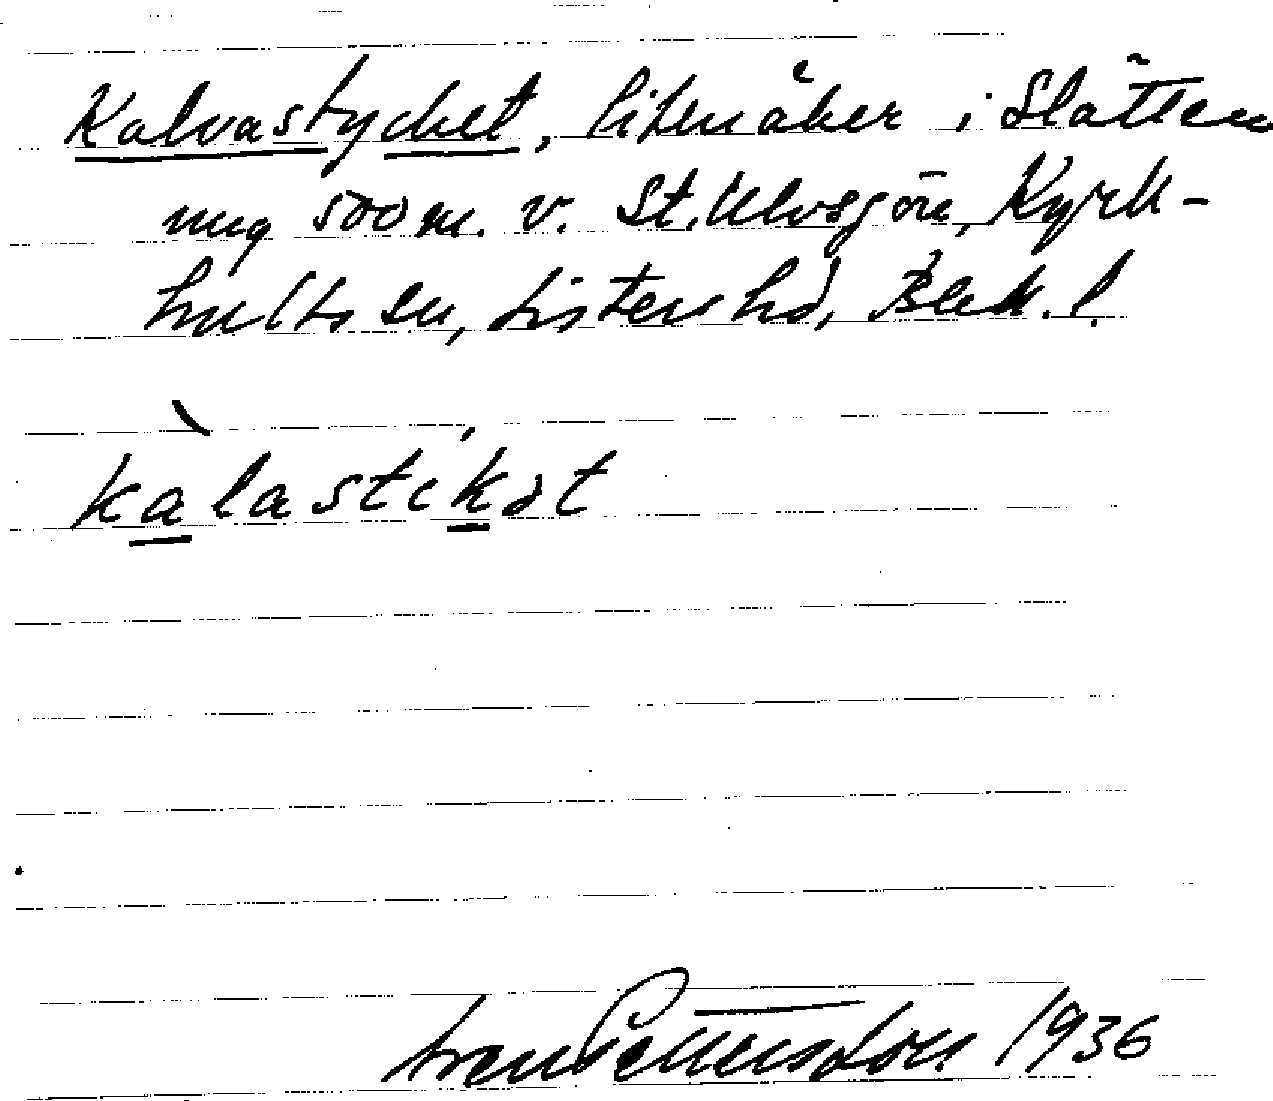 Kalvastycket, liten åker i Slätten
ung 500 m. v. St. Ulvsjön, Kyrk-
hults sn, Listers hd, Blek. l.
kàlastikət
Sven Pettersson 1936